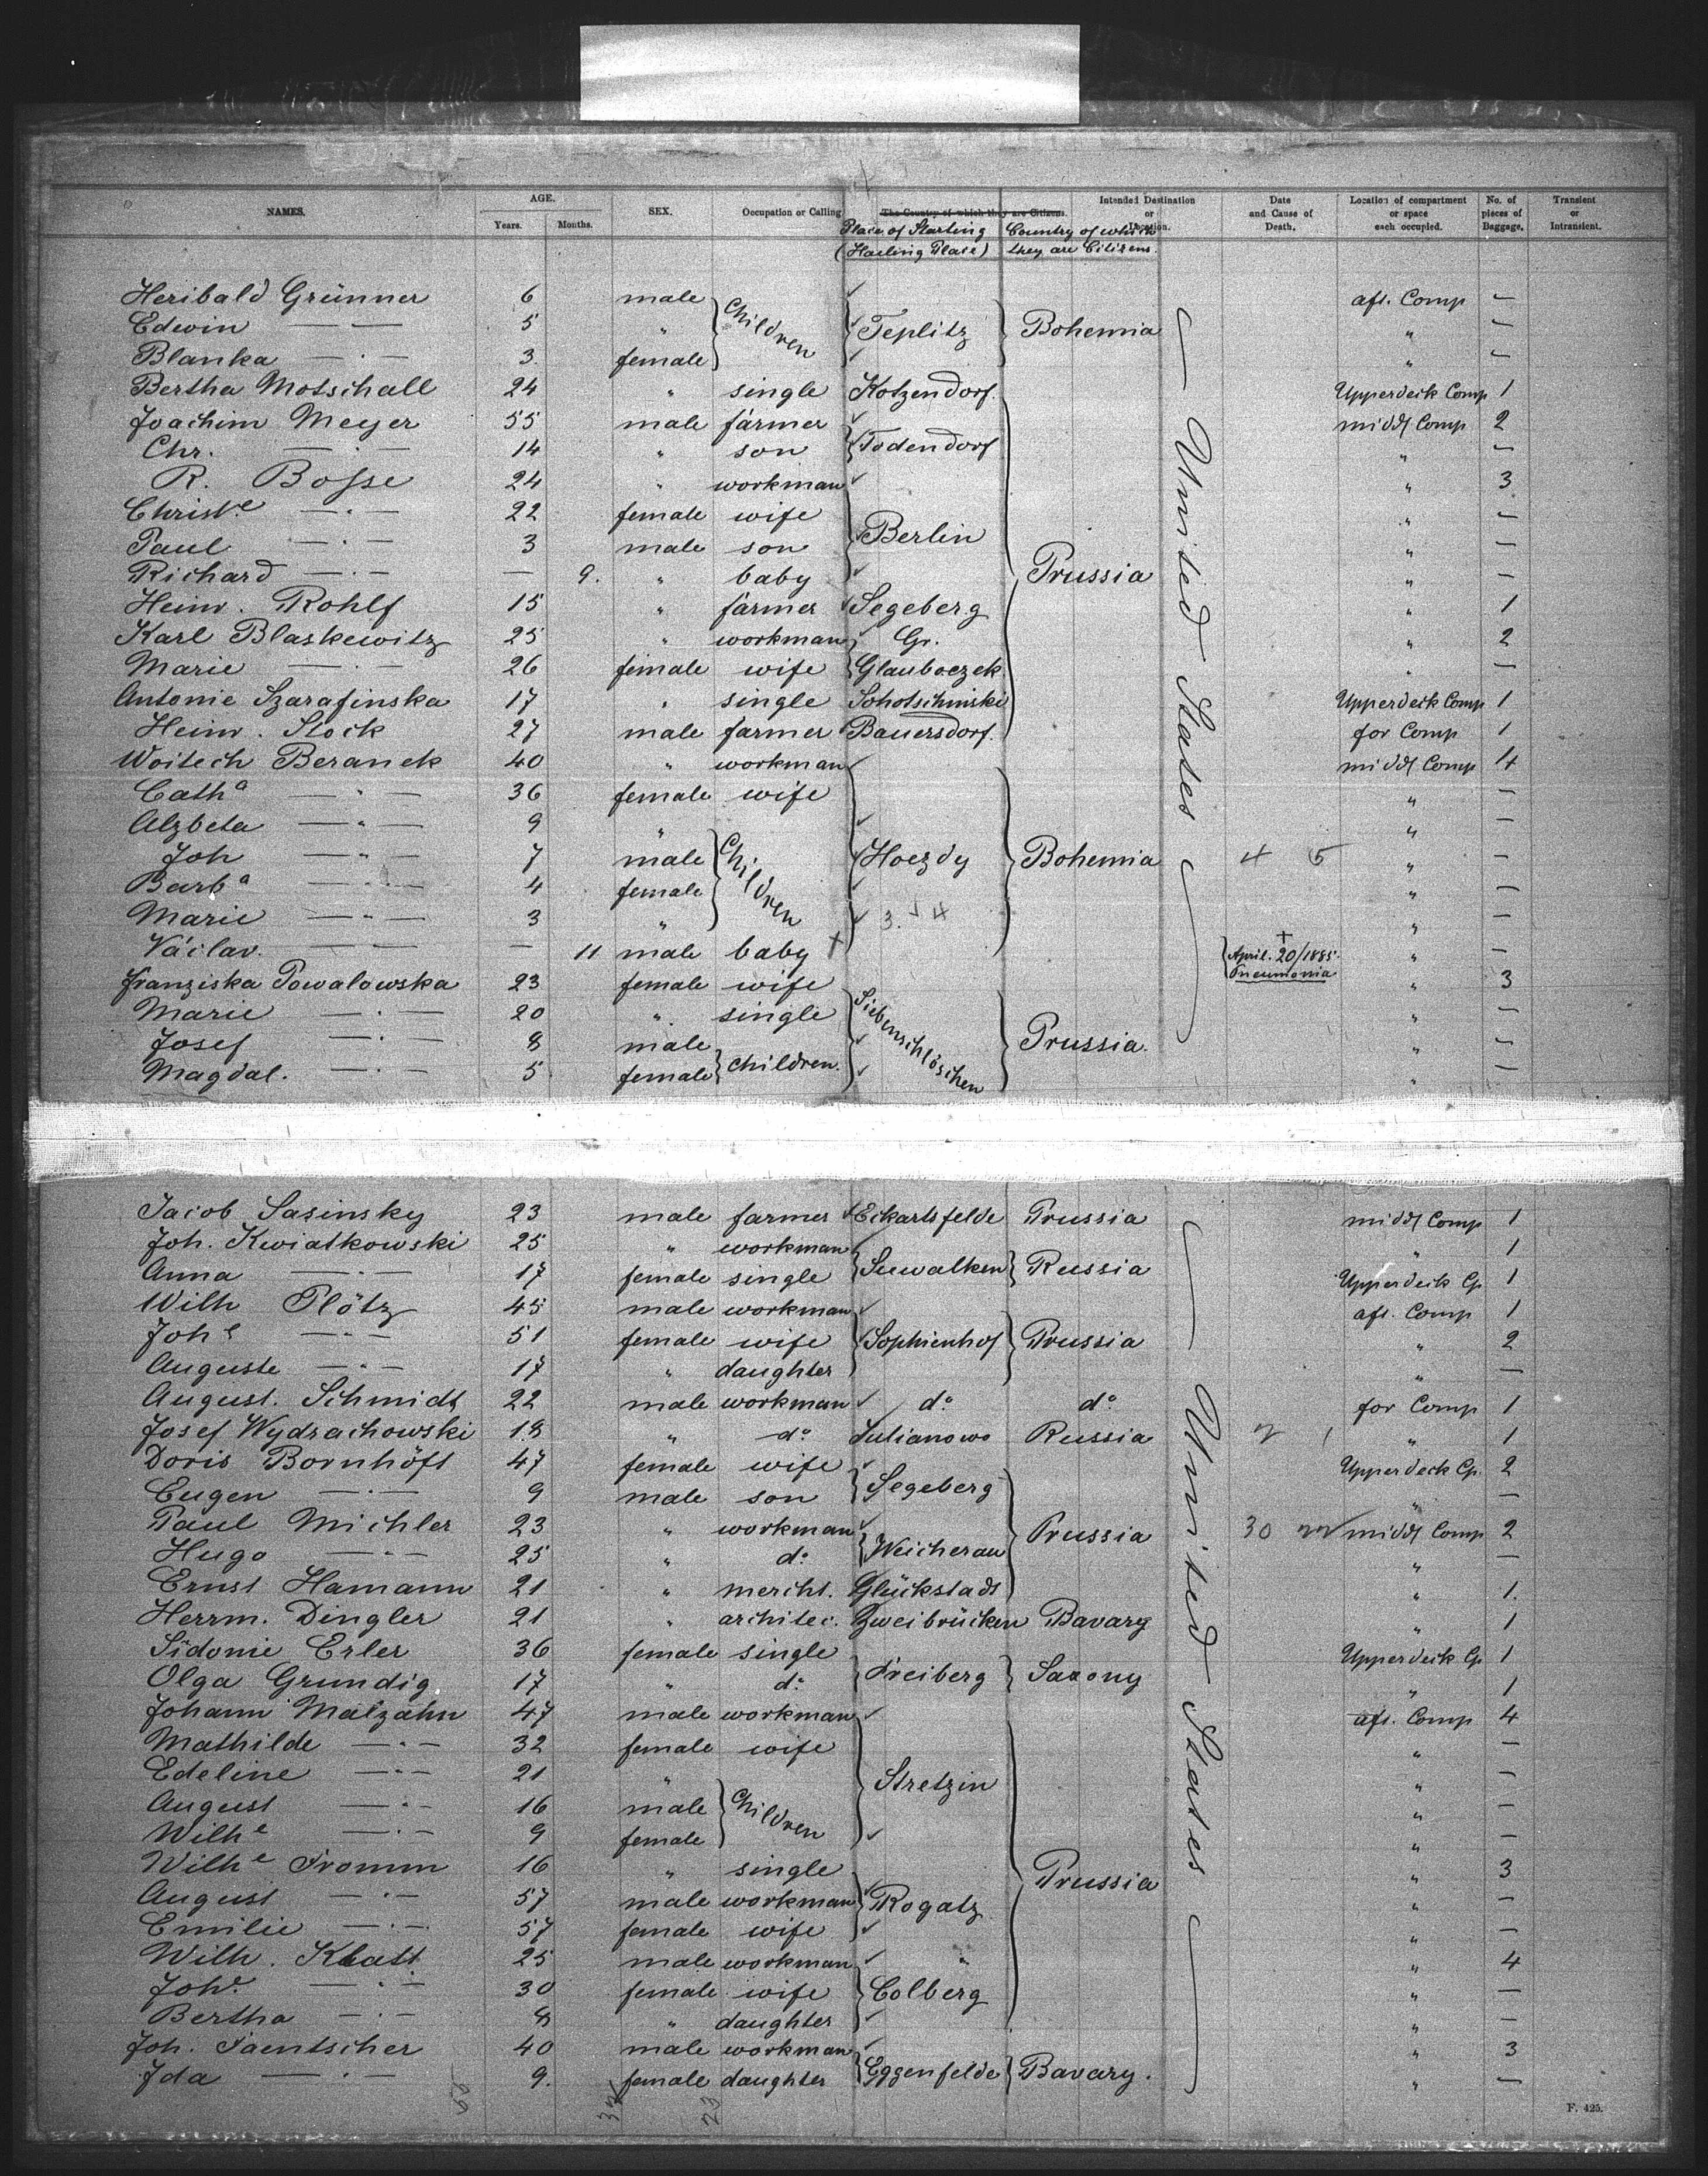 NAMES. AGE. Years. Months. SEX. Occupation or Calling The Country of which they are Citizens. Intended Destination or Location. Date and Cause of Death. Location of compartment or space each occupied. No. of pieces of Baggage. Transient or Intransient.
Place of Starting (Hailing Place) Country of which they are Citizens.
Heribald Grünner 6 male Children Teplitz Bohemia United States aft. Comp —
Edwin — — 5 " "  —
Blanka — " — 3 female " —
Bertha Motschall 24 " single Kotzendorf. Upperdeck Comp 1
Joachim Meyer 55 male farmer Todendorf Prussia middl Comp 2
Chr. — " — 14 " son " —
R. Bosse 24 " workman Berlin " 3
Christe — " — 22 female wife " —
Paul — " — 3 male son " —
Richard — " — — 9. " baby " —
Heinr. Rohlf 15 " farmer Segeberg " 1
Karl Blaskewitz 25 " workman Gr. " 2
Marie — " — 26 female wife Glauboczek " —
Antonie Szarafinska 17 " single Schotschminski Upperdeck Comp 1
Heinr. Stock 27 male farmer Bauersdorf. for Comp 1
Woitech Beranek 40 " workman Hoezdy Bohemia middl Comp 4
Catha — " — 36 female wife " —
Alzbeta — " — 9 " Children " —
Joh — " — 7 male 4 5 " —
Barba — " — 4 female " —
Marie — " — 3 " 3. 4 " —
Václav. — " — — 11 male baby + + April. 20/1885. Pneumonia " —
Franziska Powalowska 23 female wife Siebenschlöschen Prussia. " 3
Marie — " — 20 " single " —
Josef — " — 8 male children. " —
Magdal. — " — 5 female " —
Jacob Sasinsky 23 male farmer Eckartsfelde Prussia United States middl Comp 1
Joh. Kwiatkowski 25 " workman Suwalken Russia " 1
Anna — " — 17 female single Upperdeck Cp. 1
Wilh Plötz 45 male workman Sophienhof Prussia aft. Comp 1
Johe — " — 51 female wife " 2
Auguste — " — 17 " daughter " —
August. Schmidt 22 male workman do. do. for Comp 1
Josef Wydrachowski 18 " do. Julianowo Russia " 1
Doris Bornhöft 47 female wife Segeberg Prussia Upperdeck Cp. 2
Eugen — " — 9 male son " —
Paul Michler 23 " workman Weicherau 30 middl Comp 2
Hugo — " — 25 " do. " —
Ernst Hamann 21 " mercht. Glückstadt " 1.
Herrm. Dingler 21 " architec. Zweibrücken Bavary " 1
Sidonie Erler 36 female single Freiberg Saxony Upperdeck Cp. 1
Olga Grundig 17 " do. " 1
Johann Malzahn 47 male workman Stretzin Prussia aft. Comp 4
Mathilde — " — 32 female wife " —
Edeline — " — 21 " Children " —
August — " — 16 male " —
Wilhe — " — 9 female " —
Wilhe Fromm 16 " single Rogatz " 3
August — " — 57 male workman " —
Emilie — " — 57 female wife " —
Wilh. Klatt 25 male workman Colberg " 4
Johe. — " — 30 female wife " —
Bertha — " — 8 " daughter " —
Joh. Paentscher 40 male workman Eggenfelde Bavary. " 3
Ida — " — 9. female daughter " —
32 23
F. 425.